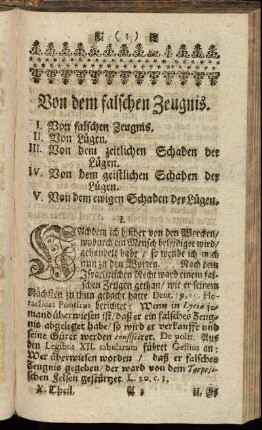 ( 3 )
Von dem falschen Zeugnis.
I. Von falschen Zeugnis.
II. Von Lügen.
III. Von dem zeitlichen Schaden der
Lügen.
IV. Von dem geistlichen Schaden der
Lügen.
V. Von dem ewigen Schaden der Lügen.
I.
NAchdem ich bißher von den Wercken/
wodurch ein Mensch beleidiget wird/
gehandelt habe / so wende ich mich
nun zu den Worten. Nach dem
Israelitischen Recht ward einem fal-
schen Zeugen gethan / wie er seinem
Nächsten zu thun gedacht hatte. Deut.
Heraclides Ponticus berichtet: Wenn in Lycia je-
mand überwiesen ist/ daß er ein falsches Zeug-
nis abgeleget habe/ so wird er verkaufft und
seine Güter werden confisciret. De polit. Aus
den Legibus XII. tabularum führet Gellius an:
Wer überwiesen worden / daß er falsches
Zeugnis gegeben / der ward von dem Tarpeji-
schen Felsen gestürtzet. L. 20. c. 1.
X. Theil. II. Es